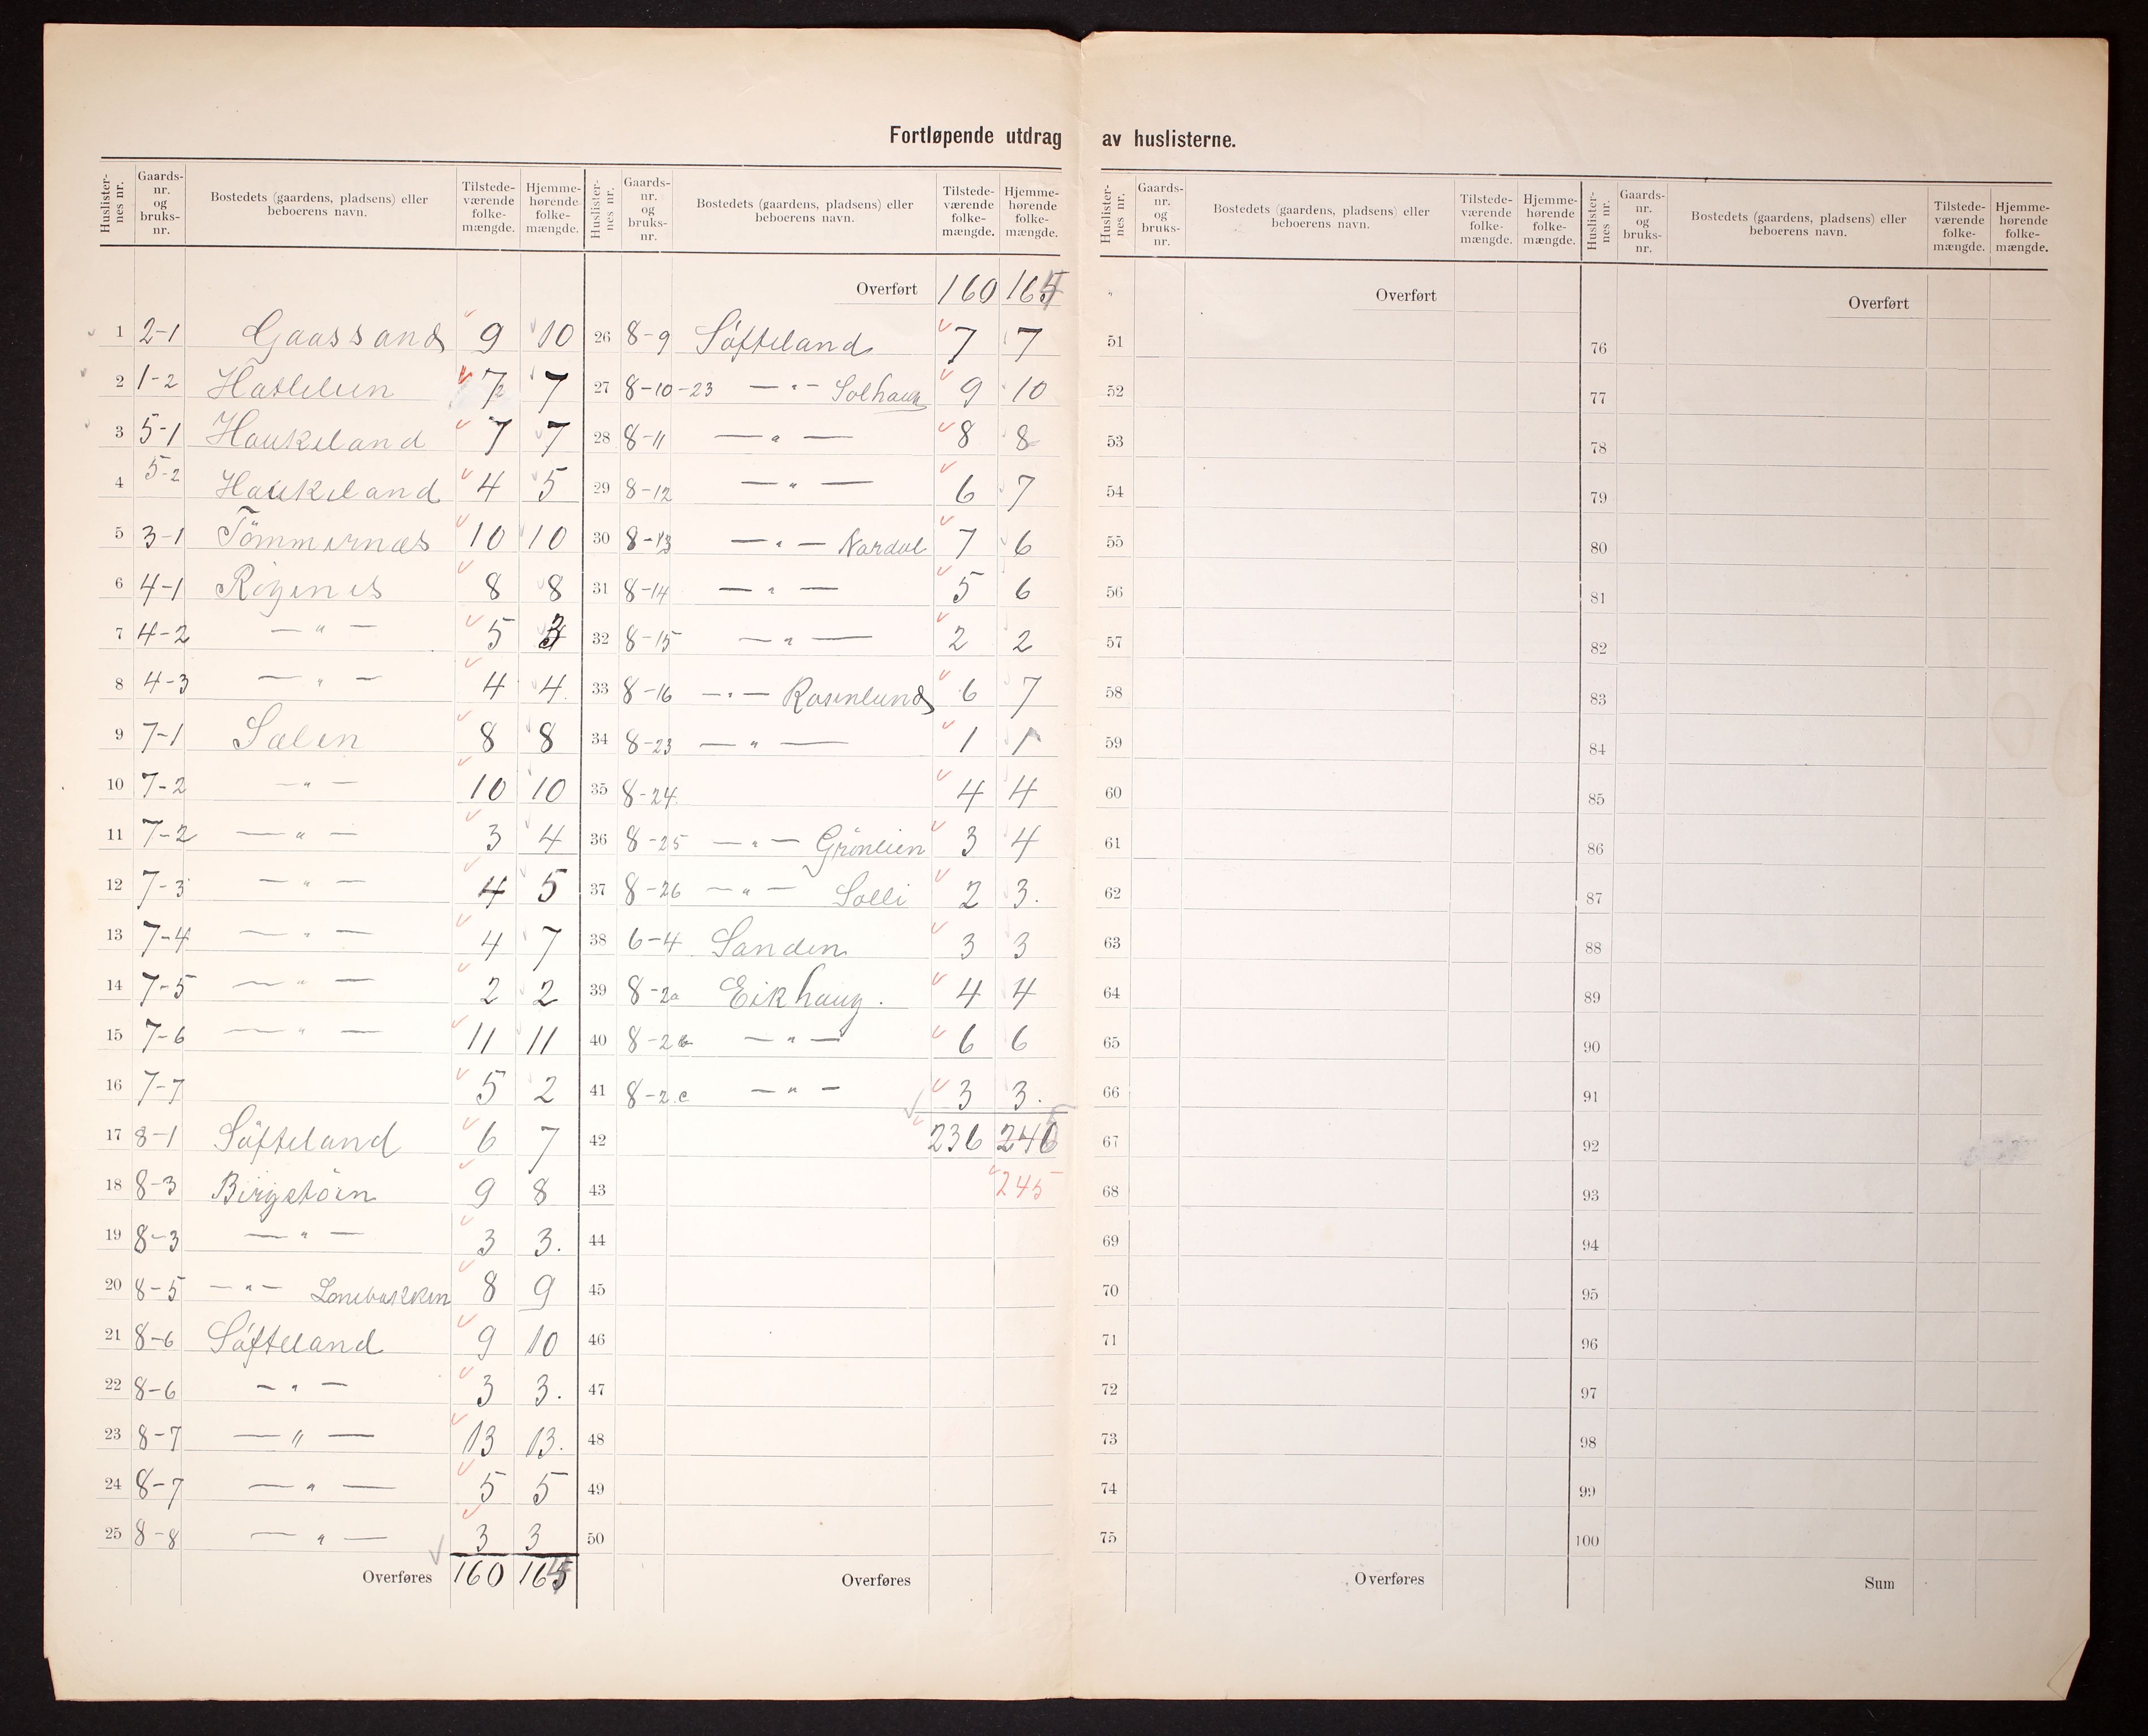 Fortløpende utdrag av huslisterne.
Huslisternes nr. Gaards-nr. og bruks-nr. Bostedets (gaardens, pladsens) eller beboerens navn. Tilstedeværende folkemængde. Hjemmehørende folkemængde.
1 2-1 Gaassand 9 10
2 1-2 Hatlelien 7 7
3 5-1 Haukeland 7 7
4 5-2 Haukeland 4 5
5 3-1 Tömmernæs 10 10
6 4-1 Rögenes 8 8
7 4-2 — " — 5 3
8 4-3 — " — 4 4.
9 7-1 Sælen 8 8
10 7-2 — " — 10 10
11 7-2 — " — 3 4
12 7-3 — " — 4 5
13 7-4 — " — 4 7
14 7-5 — " — 2 2
15 7-6 — " — 11 11
16 7-7 5 2
17 8-1 Söfteland 6 7
18 8-3 Birgetöen 9 8
19 8-3 — " — 3 3.
20 8-5 — " — Lonebakken 8 9
21 8-6 Söfteland 9 10
22 8-6 — " — 3 3.
23 8-7 — " — 13 13.
24 8-7 — " — 5 5
25 8-8 — " — 3 3
Overføres 160 164
Huslisternes nr. Gaards-nr. og bruks-nr. Bostedets (gaardens, pladsens) eller beboerens navn. Tilstedeværende folkemængde. Hjemmehørende folkemængde.
Overført 160 164
26 8-9 Söfteland 7 7
27 8-10-23 — " — Solhaug 9 10
28 8-11 — " — 8 8
29 8-12 — " — 6 7
30 8-13 — " — Nordal 7 6
31 8-14 — " — 5 6
32 8-15 — " — 2 2
33 8-16 — " — Rosenlund 6 7
34 8-23 — " — 1 1
35 8-24. 4 4
36 8-25 — " — Grönlien 3 4
37 8-26 — " — Solli 2 3.
38 6-4 Sanden 3 3
39 8-2a Eikhaug. 4 4
40 8-2b — " — 6 6
41 8-2.c — " — 3 3.
42 236 246
43 245
44
45
46
47
48
49
50
Overføres
Huslisternes nr. Gaards-nr. og bruks-nr. Bostedets (gaardens, pladsens) eller beboerens navn. Tilstedeværende folkemængde. Hjemmehørende folkemængde.
Overført
51
52
53
54
55
56
57
58
59
60
61
62
63
64
65
66
67
68
69
70
71
72
73
74
75
Overføres
Huslisternes nr. Gaards-nr. og bruks-nr. Bostedets (gaardens, pladsens) eller beboerens navn. Tilstedeværende folkemængde. Hjemmehørende folkemængde.
Overført
76
77
78
79
80
81
82
83
84
85
86
87
88
89
90
91
92
93
94
95
96
97
98
99
100
Sum